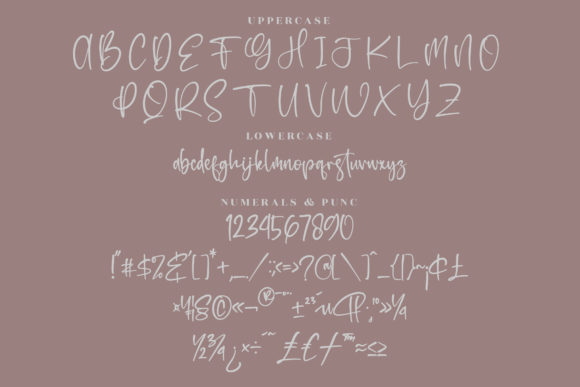 UPPERCASE
ABCDEFGHIJKLMNO
PQRSTUVWXYZ
LOWERCASE
abcdefghijklmnopqrstuvwxyz
NUMERALS & PUNC
1234567890
!"#$%&'[]*+,_./:;<=>?@(\)^_{|}~¡¢£
¤¥§©«¬®¯°±²³´µ¶·¸¹º»¼
½¾¿×÷ˆ˜ ₤€†™≈◊